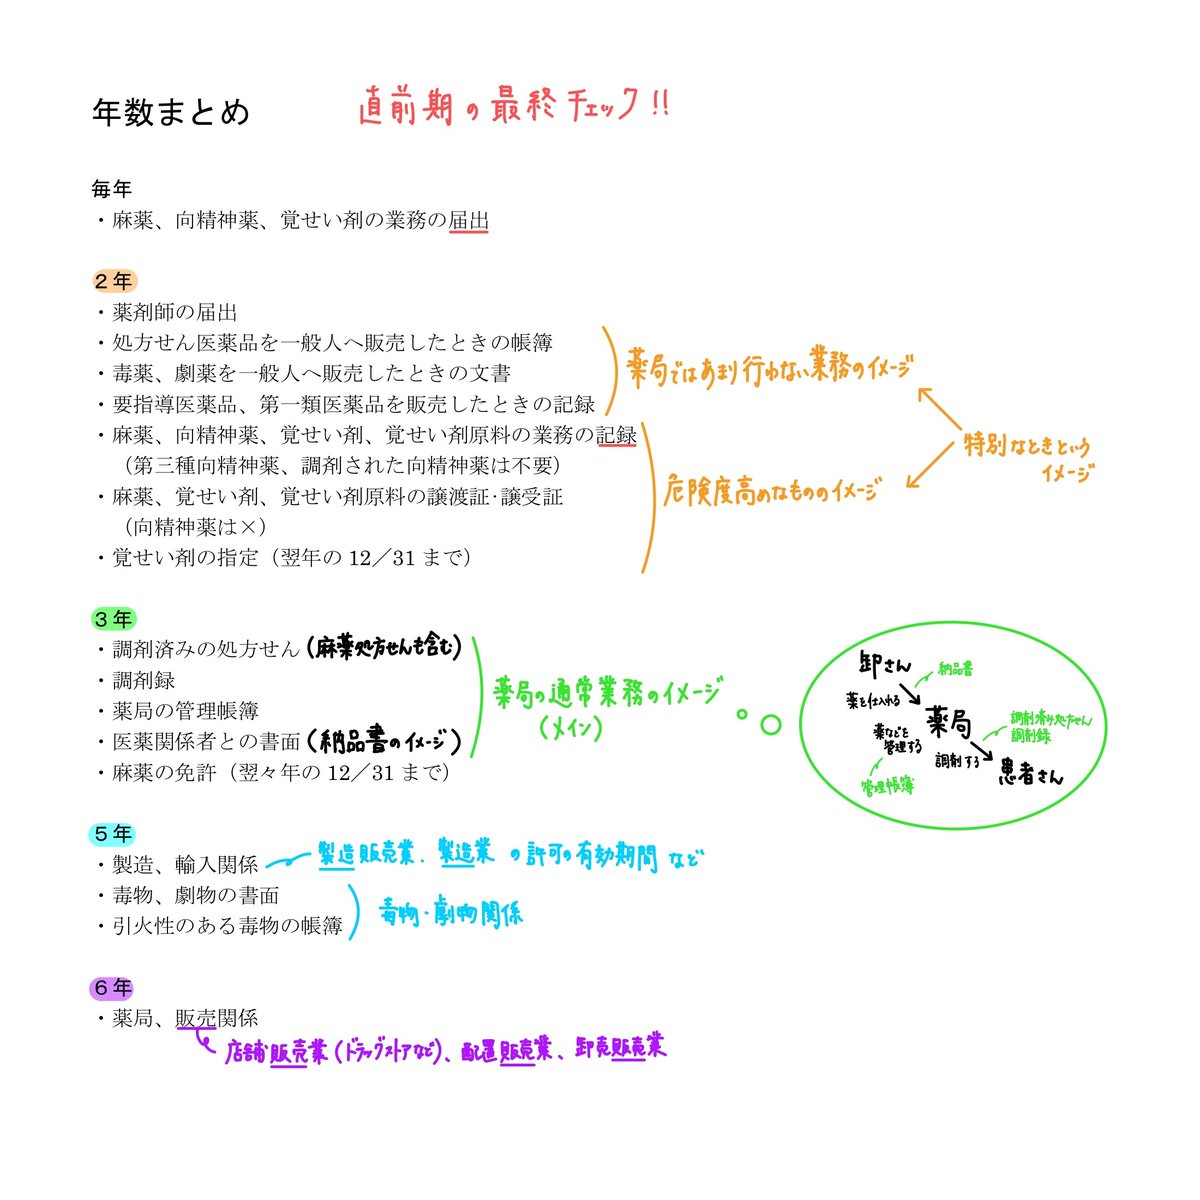 年数まとめ
直前期の最終チェック!!
毎年
・麻薬、向精神薬、覚せい剤の業務の届出
2年
・薬剤師の届出
・処方せん医薬品を一般人へ販売したときの帳簿
・毒薬、劇薬を一般人へ販売したときの文書
・要指導医薬品、第一類医薬品を販売したときの記録
薬局ではあまり行わない業務のイメージ
・麻薬、向精神薬、覚せい剤、覚せい剤原料の業務の記録
（第三種向精神薬、調剤された向精神薬は不要）
・麻薬、覚せい剤、覚せい剤原料の譲渡証・譲受証
（向精神薬は×）
・覚せい剤の指定（翌年の 12／31 まで）
危険度高めなもののイメージ
特別なときという
イメージ
3年
・調剤済みの処方せん（麻薬処方せんも含む）
・調剤録
・薬局の管理帳簿
・医薬関係者との書面（納品書のイメージ）
・麻薬の免許（翌々年の 12／31 まで）
薬局の通常業務のイメージ
（メイン）
卸さん
納品書
薬を仕入れる
薬局
薬などを
管理する
管理帳簿
調剤済み処方せん
調剤録
調剤する
患者さん
5年
・製造、輸入関係
製造販売業、製造業の許可の有効期間など
・毒物、劇物の書面
・引火性のある毒物の帳簿
毒物・劇物関係
6年
・薬局、販売関係
店舗販売業（ドラッグストアなど）、配置販売業、卸売販売業